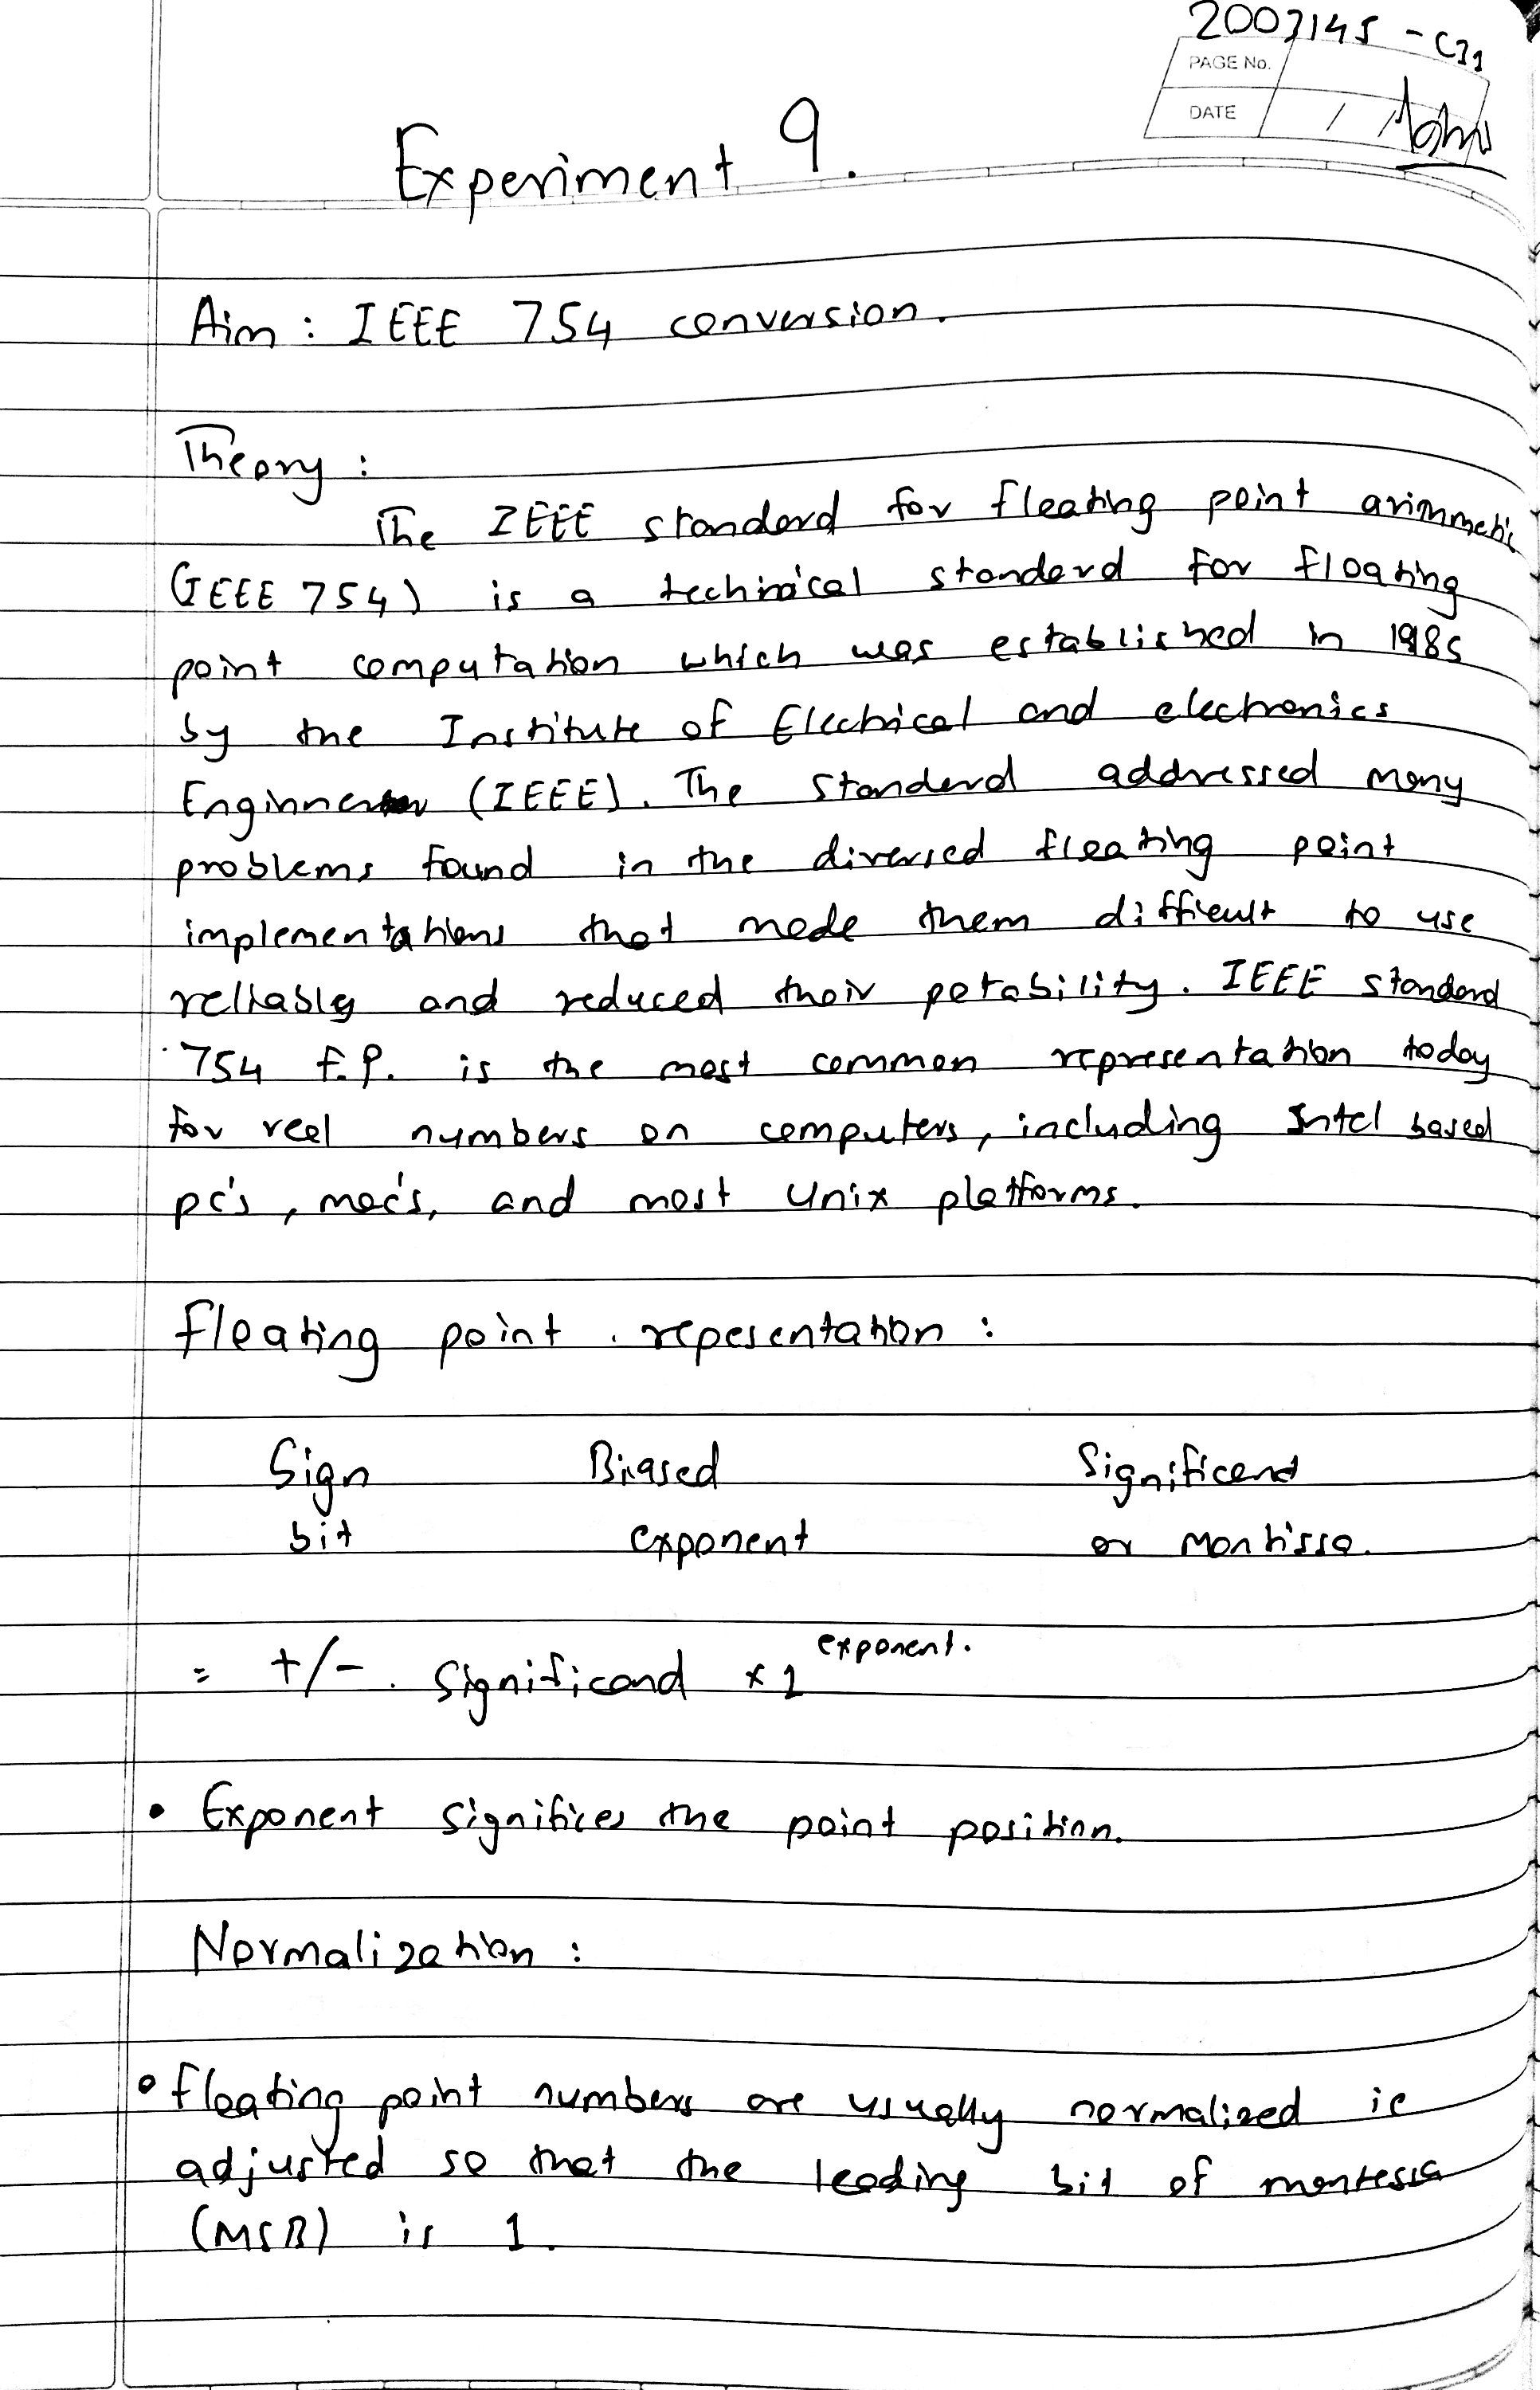 2003145 - C31
PAGE No.
DATE / /
Experiment 9.
Aim : IEEE 754 conversion.
Theory :
The IEEE standard for floating point arimmetic
(IEEE 754) is a techinical standard for floating
point computation which was established in 1985
by the Institute of Electrical and electronics
(IEEE). The standard addressed many
problems found in the diversed floating point
implementations that made them difficult to use
reliably and reduced their potability. IEEE standard
754 F.P. is the most common representation today
for real numbers on computers, including Intel based
pc's, mac's, and most Unix platforms.
floating point repesentation :
Sign Biased Significand
bit exponent or Mantissa.
= +/- . Significand * 1 exponent.
• Exponent signifies the point position.
Normalization :
• floating point numbers are usually normalized ie
adjusted so that the leading bit of mantessa
(MSB) is 1.